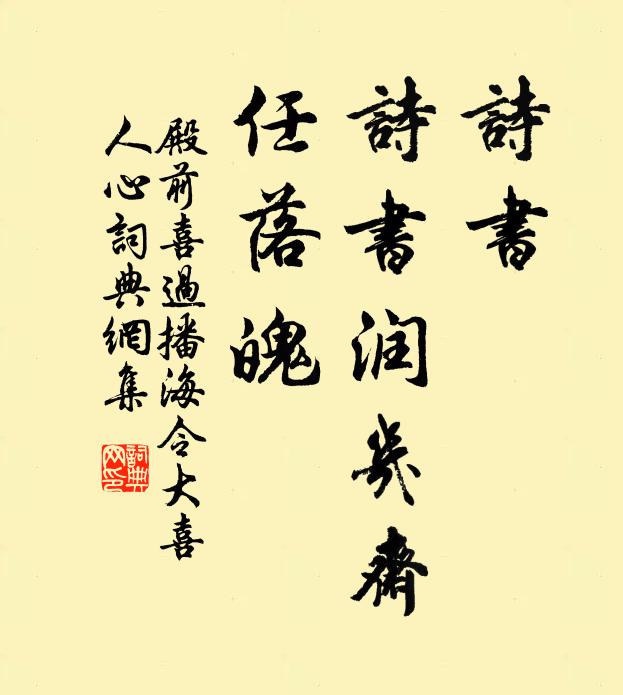 詩書
詩書润幾齋
任落魄
殿前喜過播海令大喜
人心詞典網集
詞典
网印